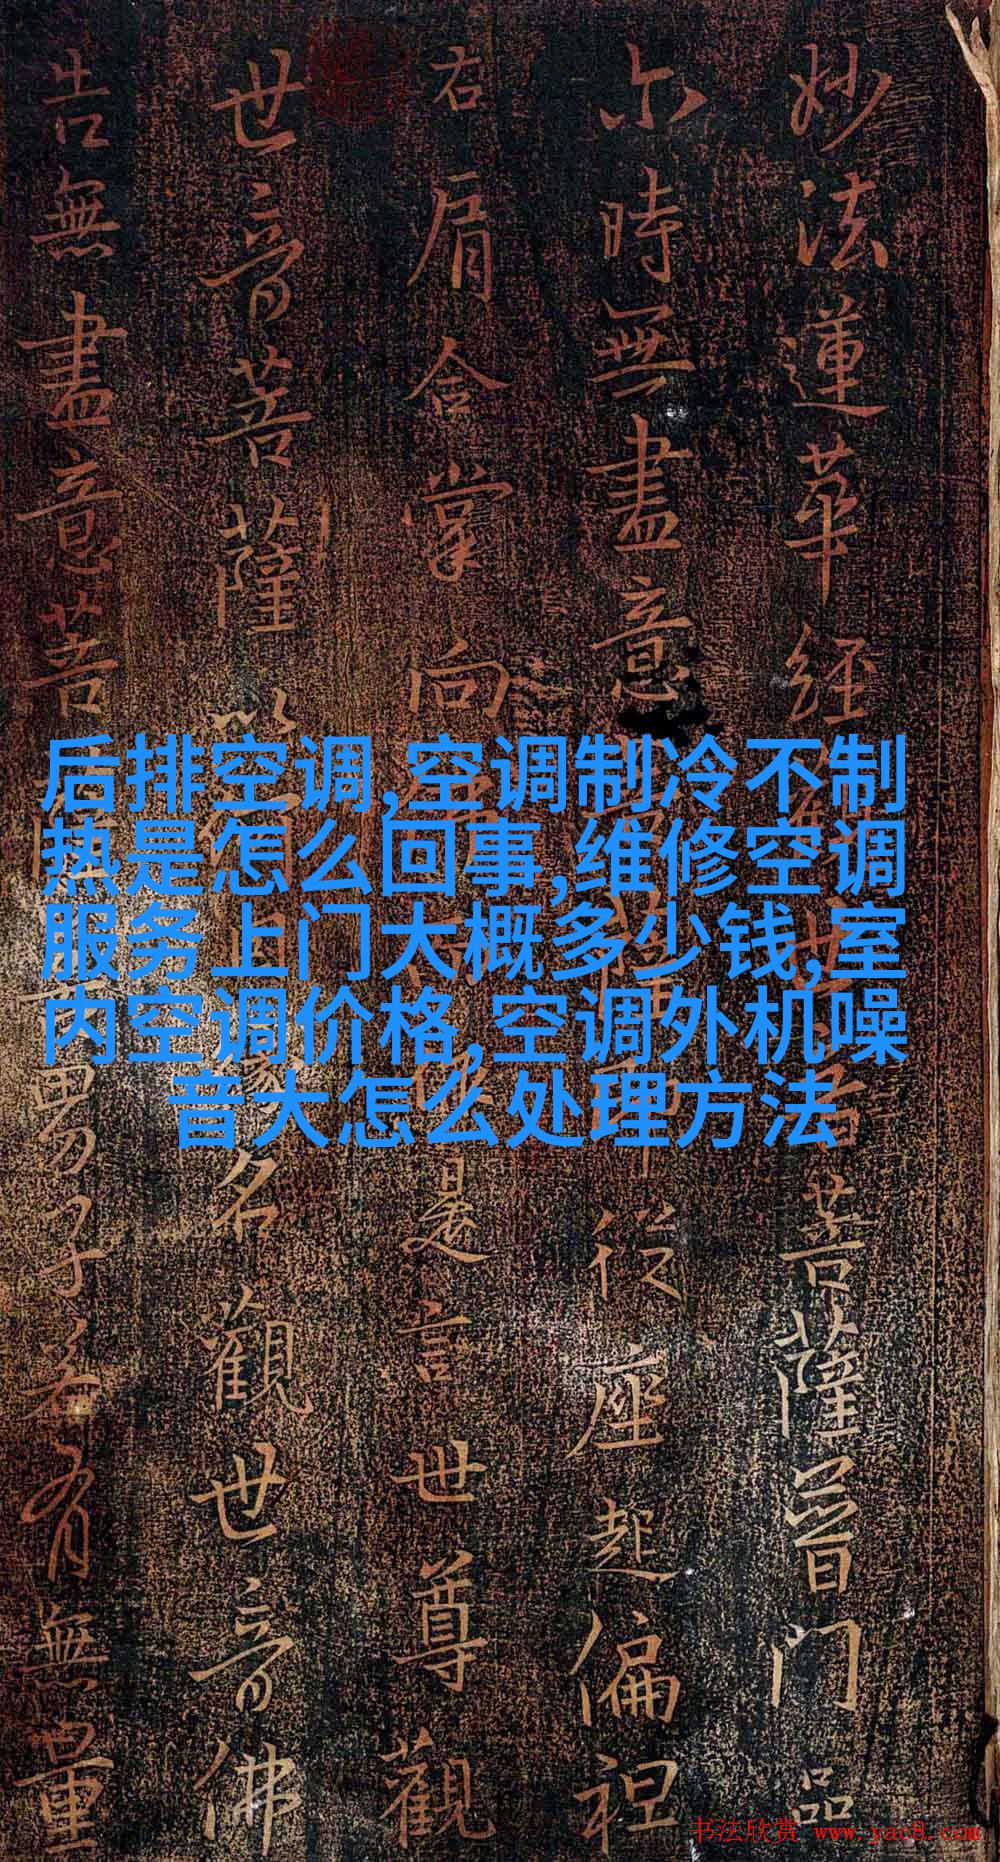 妙法蓮華經世音菩薩普門品
尒時無盡意薩從座起偏袒
右肩合掌向而作是言世尊觀
世音菩薩以何因緣名觀世音佛
告無盡意菩男子若有無量
后排空调,空调制冷不制
热是怎么回事,维修空调
服务上门大概多少钱,室
内空调价格,空调外机噪
音大怎么处理方法
书法欣赏 www.yac8.com